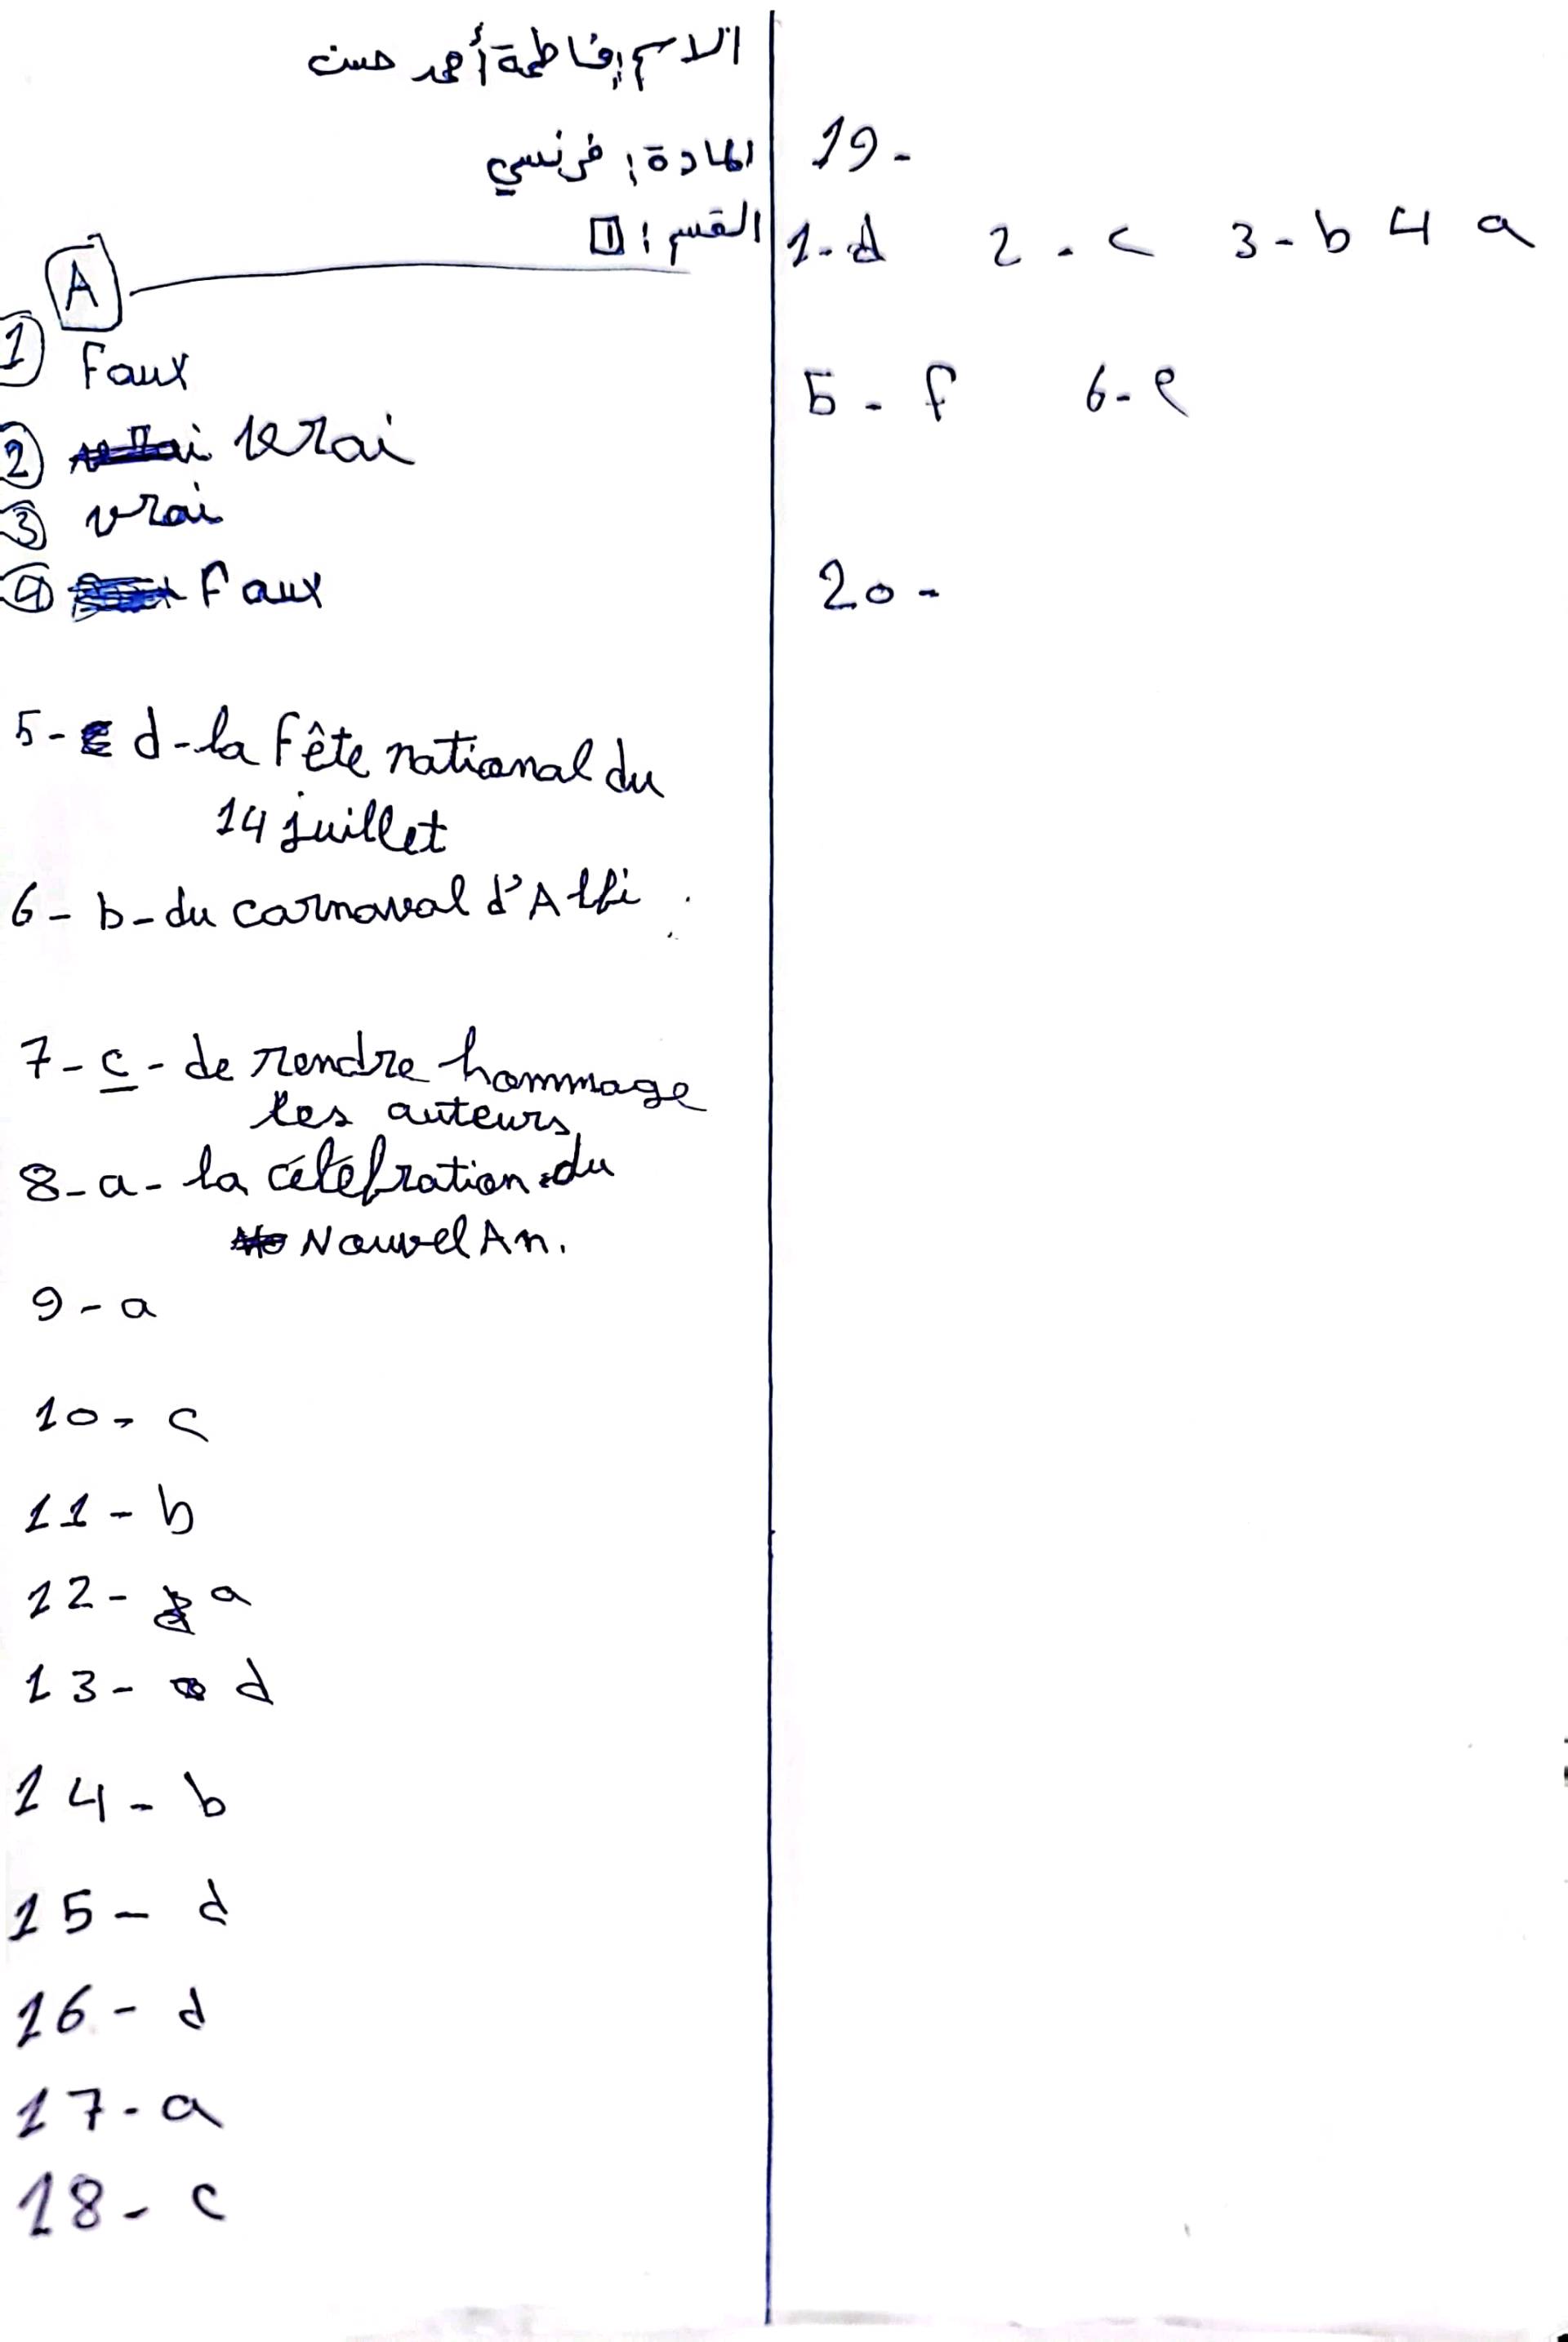 الاسم: فاطمة أحمد حسن
المادة: فرنسي
القسم: 1
A
1 Faux
2 vrai
3 vrai
4 Faux
5- d-la Fête national du
14 juillet
6- b-du carnaval d'Albi
7- c- de rendre hommage
les auteurs
8-a- la célébration du
Nouvel An.
9-a
10- c
11-b
12- a
13- d
14-b
15- d
16- d
17-a
18-c
19-
1-d 2-c 3-b 4 a
5-f 6-e
20-